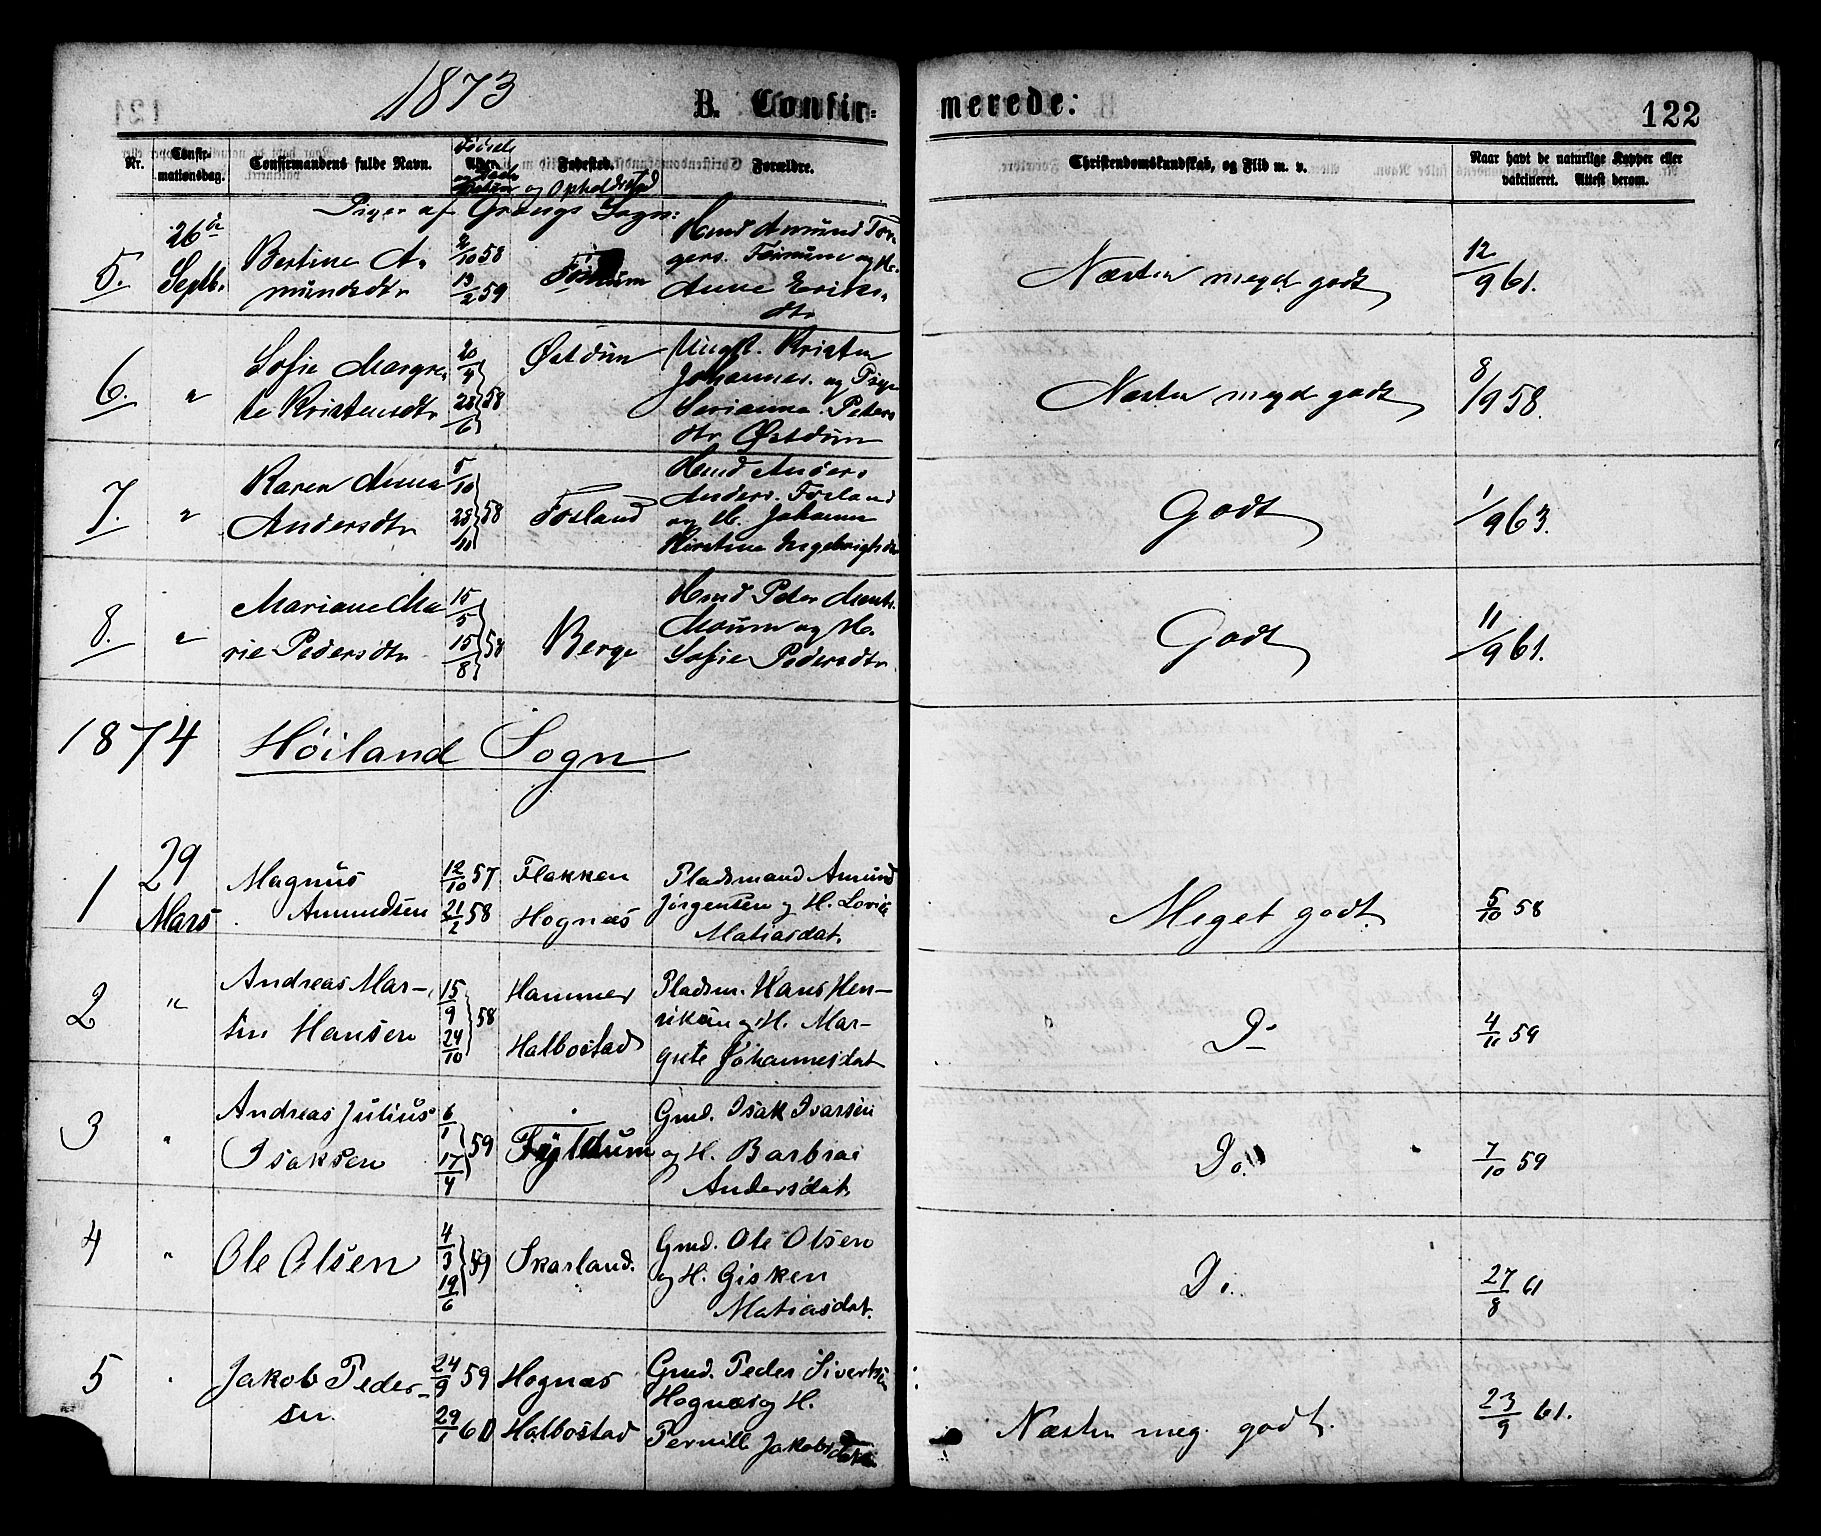 1873
B. Confirmerede:
122
Nr.
Confirmationsdag.
Confirmandens fulde Navn.
Fødested og Opholdssted
Forældre.
Christendomskundskab, og Flid m. v.
Naar havt de naturlige Kopper eller
vakcineret. Attest derom.
Piger af Grongs Sogn:
5. 26de Septb. Bertine A-
mundsdtr
2/10 58
13/2 59
Gmd Amund Tor-
gers.
Anne Eriks-
dtr
Næsten meget godt
12/9 61.
6. " Sofie Margre-
te Kristensdtr
20/4 28/6 58
Østdun
Ungk. Kristen
Johannes. og Pige
Serianna Peters
dtr Østdun
Næsten meget godt
8/9 58.
7. " Karen Anna
Andersdtr
5/10 28/11 58
Fosland
Gmd Anders
Anders. Fosland
og H. Johanna
Kirstine Ingebrigtsdtr
Godt
1/9 63.
8. " Mariane Ma
rie Pedersdtr
15/5 15/8 58
Berge
Gmd Peter Ments.
Moum og H.
Sofie Pedersdtr
Godt
11/9 61.
1874 Høiland Sogn
1 29 Mars Magnus
Amundsen
12/10 57
21/2 58
Flakken
Hognæs
Pladsmand Amund
Jørgensen og H. Lovise
Matiasdat.
Meget godt
5/10 58
2 " Andreas Mar-
tin Hansen
15/9 24/10 58
Hammer
Halbostad
Pladsm. Hans Hen-
riksen og H. Mar-
grete Johannesdat
Do
4/11 59
3 " Andreas Julius
Isaksen
6/1 17/4 59
Fyldum
Gmd. Isak Ivarsen
og H. Barbrai
Andersdat.
Do.
7/10 59
4 " Ole Olsen
4/3 19/6 59
Skarland.
Gmd. Ole Olsen
og H. Gisken
Matiasdat.
Do.
27/8 61
5 " Jakob Peder-
sen.
24/9 59
29/1 60
Hognæs
Halbostad
Gmd. Peder Sivertsen
Hognæs og H.
Pernill Jakobsdat.
Næsten meg. godt.
23/9 61.